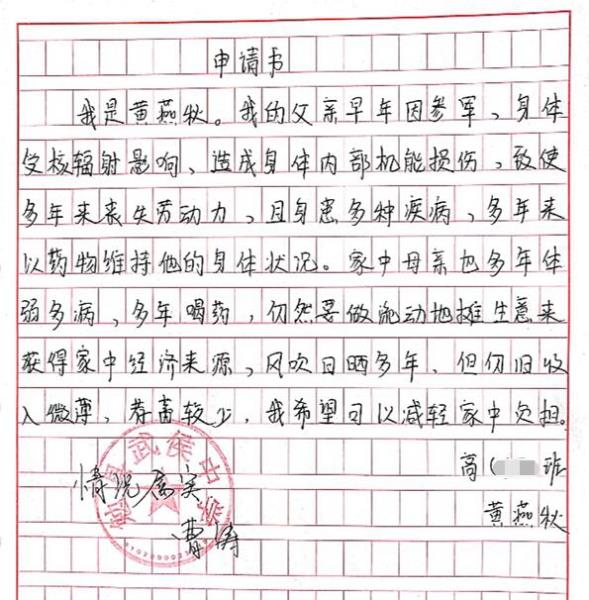 申请书
我是黄燕秋。我的父亲早年因参军、身体
受核辐射影响、造成身体内部机能损伤、致使
多年来丧失劳动力、且身患多种疾病、多年来
以药物维持他的身体状况。家中母亲也多年体
弱多病、多年喝药、仍然要做流动地摊生意来
获得家中经济来源、风吹日晒多年、但仍旧收
入微薄、存蓄较少、我希望可以减轻家中负担。
高( 班
黄燕秋
情况属实
曹涛
武侯中学